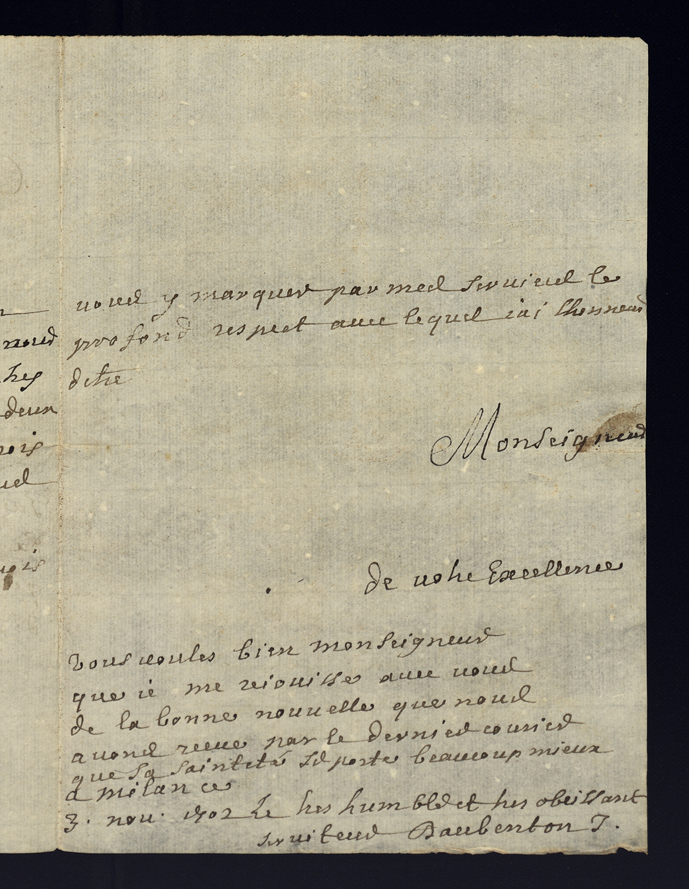 nous
ches
deux
vous y marquer par mes services le
profond respect avec lequel iai lhonneur
detre
Monseigneur
de votre Excellence
vous voules bien monseigneur
que ie me reiouisse avec vous
de la bonne nouvelle que nous
avons receue par le dernier courier
que sa sainteté se porte beaucoup mieux
a milan ce
3. nov. 1702 Le tres humble et tres obeissant
serviteur Daubenton J.